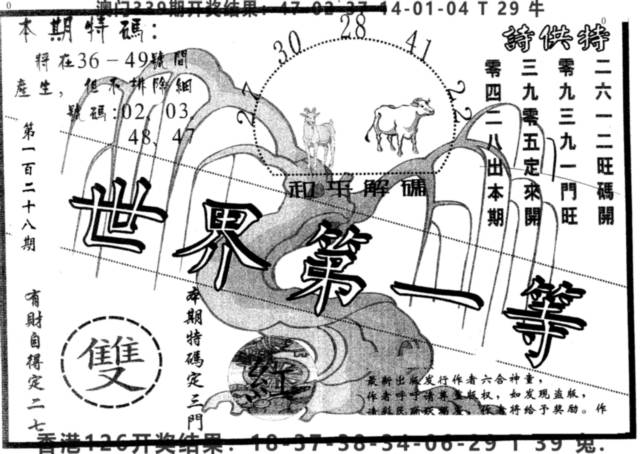 澳门339期开奖结果：47-02-37-14-01-04 T 29 牛
本期特碼：
將在36－49號間
產生，但不排除細
號碼：02、03、
48、47
第一百二十八期
27
30
28
41
22
和平解碼
詩供特
二六一二旺碼開
零九三九一門旺
三九零五定來開
零四二八出本期
世界第一等
有財自得定二七
雙
本期特碼定三門
紅
最新出版发行作者六合神童，
作者呼吁请尊重版权，如发现盗版，
作者将给予奖励。作
香港126开奖结果：18-37-38-34-06-29 T 39 兔.